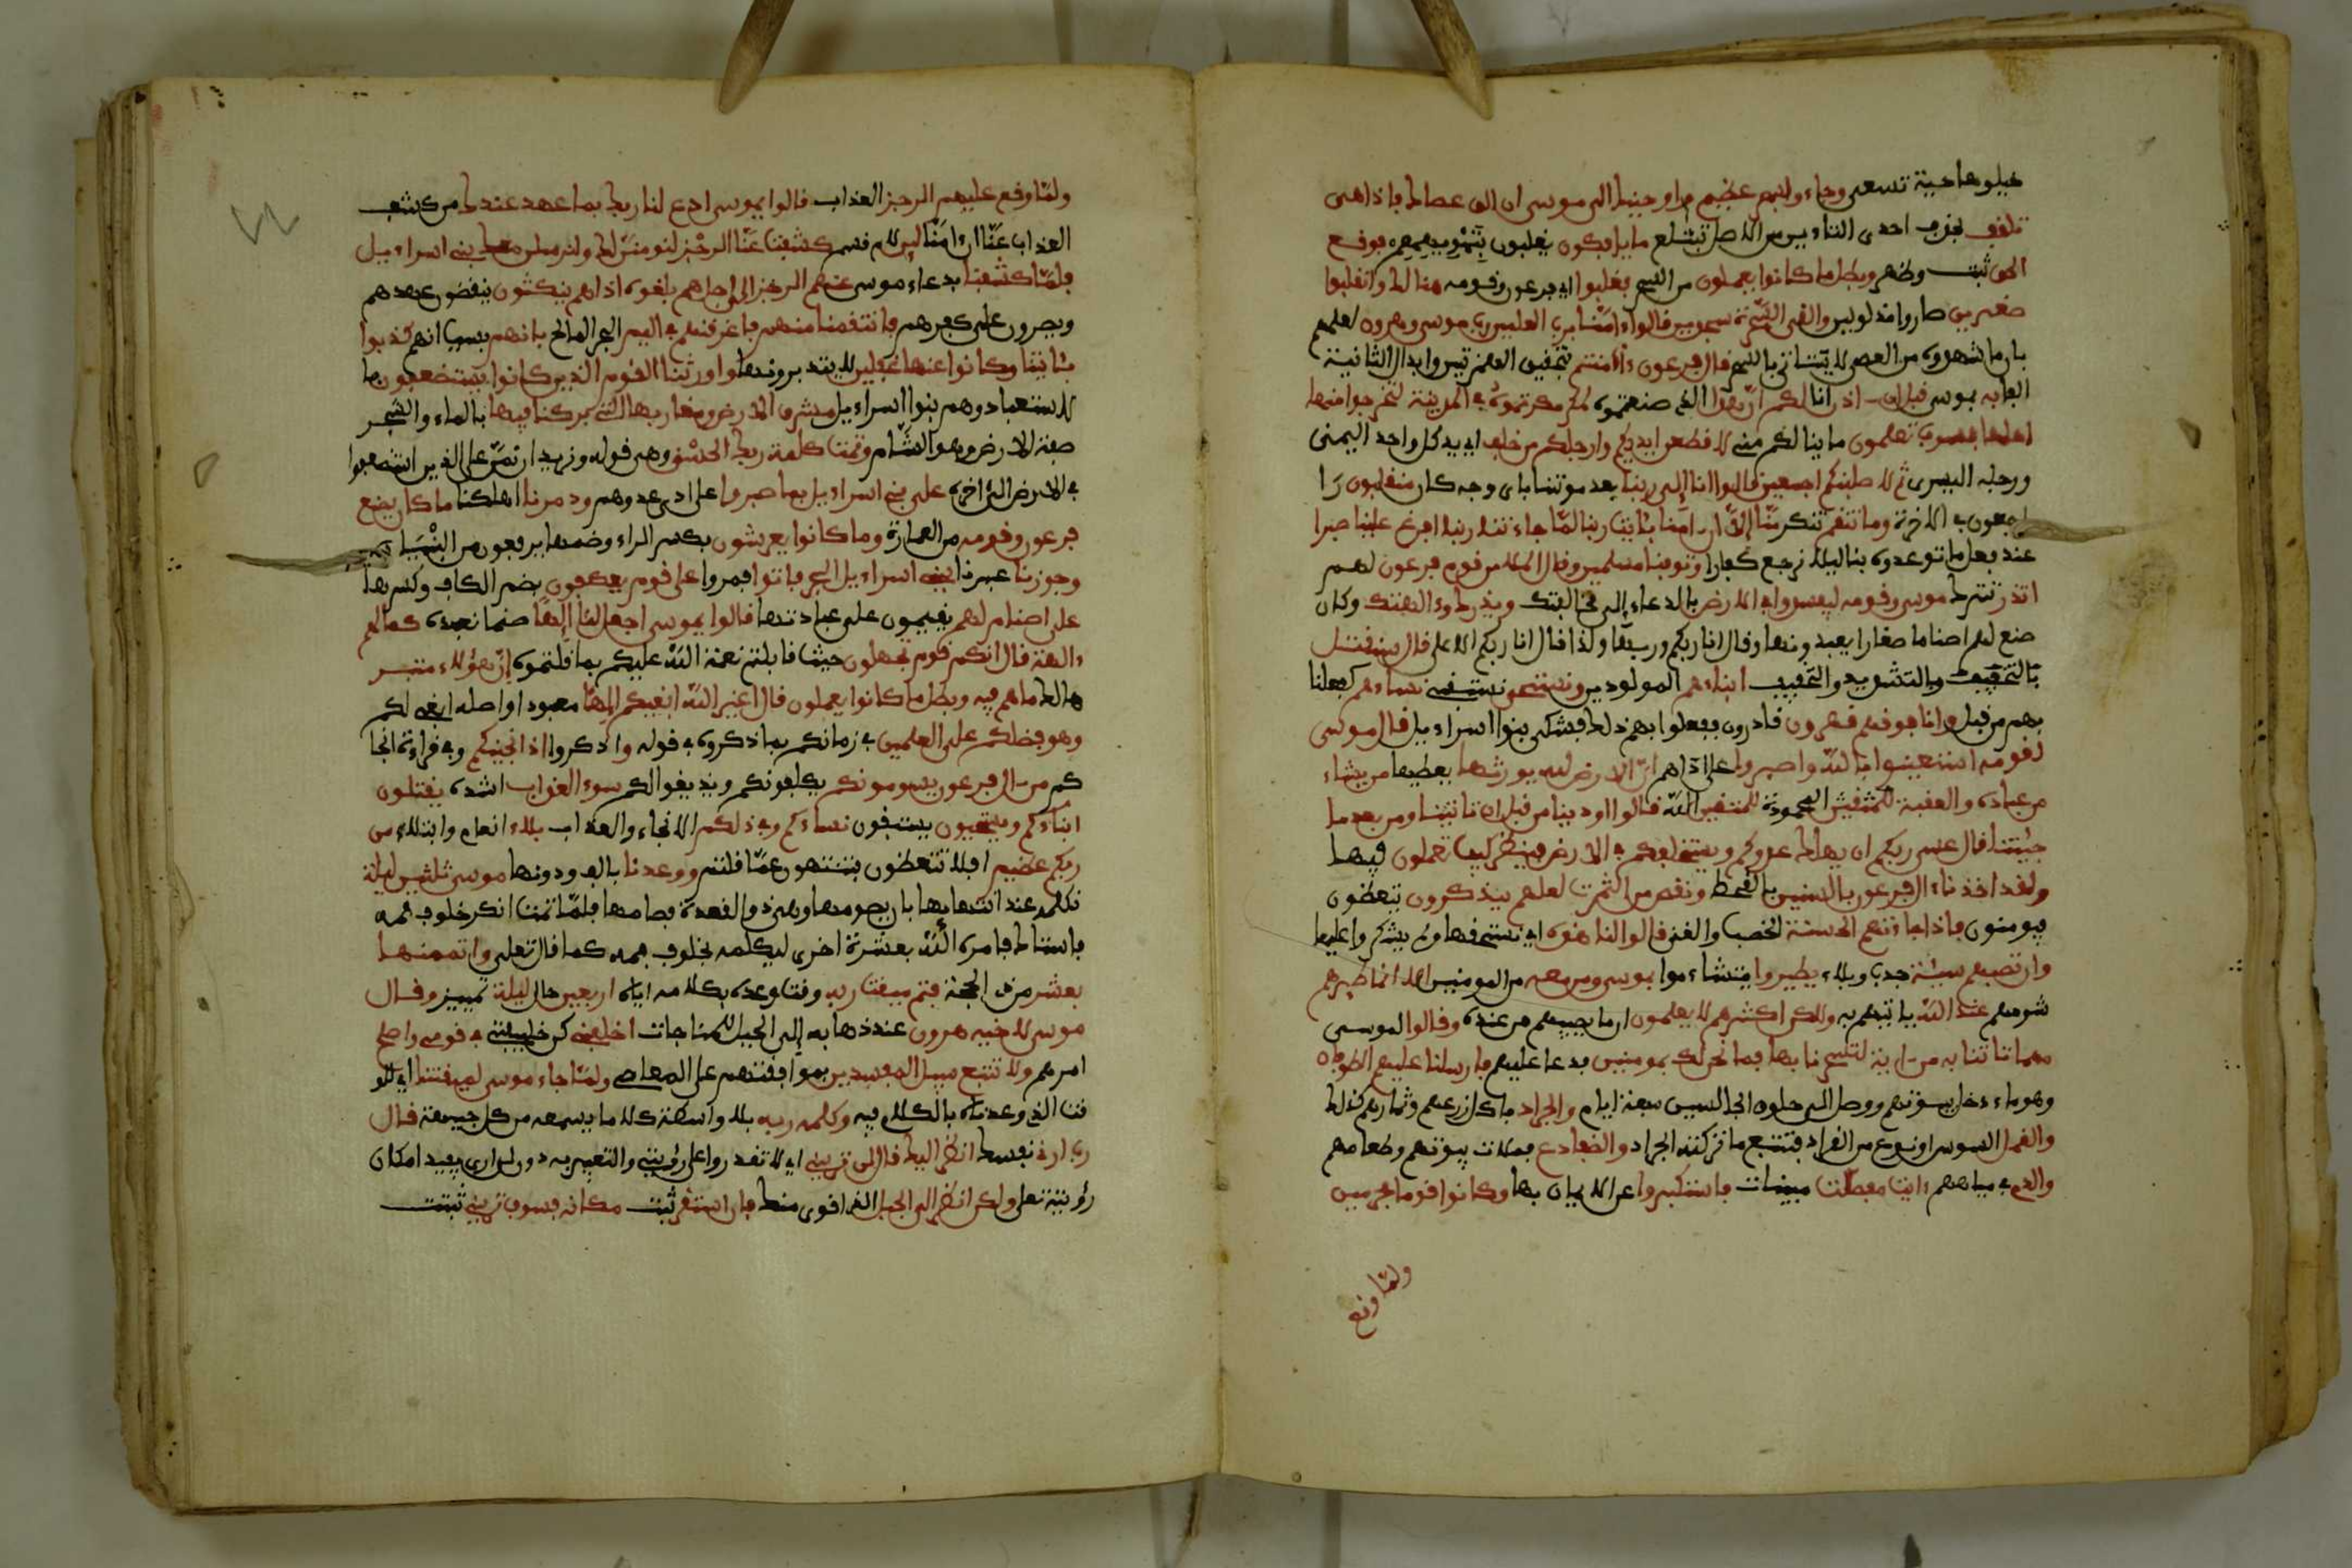 خيلوها حية تسعى وجاءو بسحر عظيم واوحينا الى موسى ان الق عصاك فاذا هى
تلقف بحذف احدى التاءين من الاصل تبتلع ما يافكون يقلبون بتمويههم فوقع
الحق ثبت وظهر وبطل ما كانوا يعملون من السحر فغلبوا اى فرعون وقومه هنالك وانقلبوا
صغرين صاروا ذليلين والقى السحرة سجدين قالوا ءامنا برب العلمين رب موسى وهرون لعلمهم
بان ما شهدوه من العصى لا يتاتى بالسحر قال فرعون ءاامنتم بتحقيق الهمزتين وابدال الثانية
الفا به بموسى قبل ان ءاذن انا لكم ان هذا الذى صنعتموه لمكر مكرتموه فى المدينة لتخرجوا منها
اهلها فسوف تعلمون ما ينالكم منى لاقطعن ايديكم وارجلكم من خلف اى يد كل واحد اليمنى
ورجله اليسرى ثم لاصلبنكم اجمعين قالوا انا الى ربنا بعد موتنا باى وجه كان منقلبون را
جعون فى الاخرة وما تنقم تنكر منا الا ان ءامنا بئايت ربنا لما جاءتنا ربنا افرغ علينا صبرا
عند فعل ما توعدوه بنا ليلا نرجع كفارا وتوفنا مسلمين وقال الملا من قوم فرعون لهم
اتذر تترك موسى وقومه ليفسدوا فى الارض بالدعاء الى مخالفتك ويذرك وءالهتك وكان
صنع لهم اصناما صغارا يعبدونها وقال انا ربكم وربها ولذا قال انا ربكم الاعلى قال سنقتل
بالتخفيف وبالتشديد والتخفيف ابناءهم المولودين ونستحى نستبقى نساءهم كفعلنا
بهم من قبل وانا فوقهم قهرون قادرون ففعلوا بهم ذلك فشكى بنوا اسراءيل قال موسى
لقومه استعينوا بالله واصبروا على اذاهم ان الارض لله يورثها يعطيها من يشاء
من عباده والعقبة المحمودة للمتقين الله قالوا اوذينا من قبل ان تاتينا ومن بعد ما
جئتنا قال عسى ربكم ان يهلك عدوكم ويستخلفكم فى الارض فينظر كيف تعملون فيها
ولقد اخذنا ءال فرعون بالسنين بالقحط ونقص من الثمرت لعلهم يذكرون يتعظون
فيومنون فاذا جاءتهم الحسنة الخصب والغنى قالوا لنا هذه اى نستحقها ولم يشكروا عليها
وان تصبهم سيئة جدب وبلاء يطيروا يتشاءموا بموسى ومن معه من المومنين الا انما طيرهم
شومهم عند الله ياتيهم به ولكن اكثرهم لا يعلمون ان ما يصيبهم من عنده وقالوا لموسى
مهما تاتنا به من ءاية لتسحرنا بها فما نحن لك بمومنين فدعا عليهم فارسلنا عليهم الطوفان
وهو ماء دخل بيوتهم ووصل الى حلوق الجالسين سبعة ايام والجراد فاكل زرعهم وثمارهم كذلك
والقمل السوس او نوع من القراد فتتبع ما تركته الجراد والضفادع فملات بيوتهم وطعامهم
والدم فى مياههم ءايت مفصلت مبينات فاستكبروا عن الايمان بها وكانوا قوما مجرمين
ولما وقع
ولما وقع عليهم الرجز العذاب قالوا يموسى ادع لنا ربك بما عهد عندك من كشف
العذاب عنا ان ءامنا لين لام قسم كشفت عنا الرجز لنومنن لك ولنرسلن معك بنى اسراءيل
فلما كشفنا بدعاء موسى عنهم الرجز الى اجل هم بلغوه اذا هم ينكثون ينقضون عهدهم
ويصرون على كفرهم فانتقمنا منهم فاغرقنهم فى اليم البحر المالح بانهم بسبب انهم كذبوا
بئايتنا وكانوا عنها غفلين لا يتدبرونها واورثنا القوم الذين كانوا يستضعفون با
لاستعباد وهم بنوا اسراءيل مشرق الارض ومغاربها التى بركنا فيها بالماء والشجر
صفة الارض وهو الشام وتمت كلمة ربك الحسنى وهى قوله ونريد ان نمن على الذين استضعفوا
فى الارض الى اخره على بنى اسراءيل بما صبروا على اذى عدوهم ودمرنا اهلكنا ما كان يصنع
فرعون وقومه من العمارة وما كانوا يعرشون بكسر الراء وضمها يرفعون من البنيان
وجوزنا عبرنا ببنى اسراءيل البحر فاتوا فمروا على قوم يعكفون بضم الكاف وكسرها
على اصنام لهم يقيمون على عبادتها قالوا يموسى اجعل لنا الها صنما نعبده كما لهم
ءالهة قال انكم قوم تجهلون حيث قابلتم نعمة الله عليكم بما قلتموه ان هؤلاء متبر
هالك ما هم فيه وبطل ما كانوا يعملون قال اغير الله ابغيكم الها معبودا واصله ابغى لكم
وهو فضلكم على العلمين فى زمانكم بما ذكره فى قوله واذكروا اذ انجينكم وفى قراءة انجا
كم من ءال فرعون يسومونكم يكلفونكم ويذيقونكم سوء العذاب اشده يقتلون
ابناءكم ويستحيون يستبقون نساءكم وفى ذلكم الانجاء والعذاب بلاء انعام وابتلاء من
ربكم عظيم افلا تتعظون فتنتهون عما قلتم ووعدنا بالف ودونها موسى ثلثين ليلة
نكلمه عند انتهائها بان يصومها وهى ذو القعدة فصامها فلما تمت انكر خلوف فمه
فاستاك فامره الله بعشرة اخرى ليكلمه بخلوف فمه كما قال تعلى واتممنها
بعشر من ذى الحجة فتم ميقت ربه وقت وعده بكلامه اياه اربعين حال ليلة تمييز وقال
موسى لاخيه هرون عند ذهابه الى الجبل للمناجات اخلفنى كن خليفتى فى قومى واصلح
امرهم ولا تتبع سبيل المفسدين بموافقتهم على المعاصى ولما جاء موسى لميقتنا اى للو
قت الذى وعدناه بالكلام فيه وكلمه ربه بلا واسطة كلاما يسمعه من كل جهة قال
رب ارنى نفسك انظر اليك قال لن ترينى اى لا تقدر على رؤيتى والتعبير به دون لن ارى يفيد امكان
رؤيته تعلى ولكن انظر الى الجبل الذى اقوى منك فان استقر ثبت مكانه فسوف ترينى تثبت